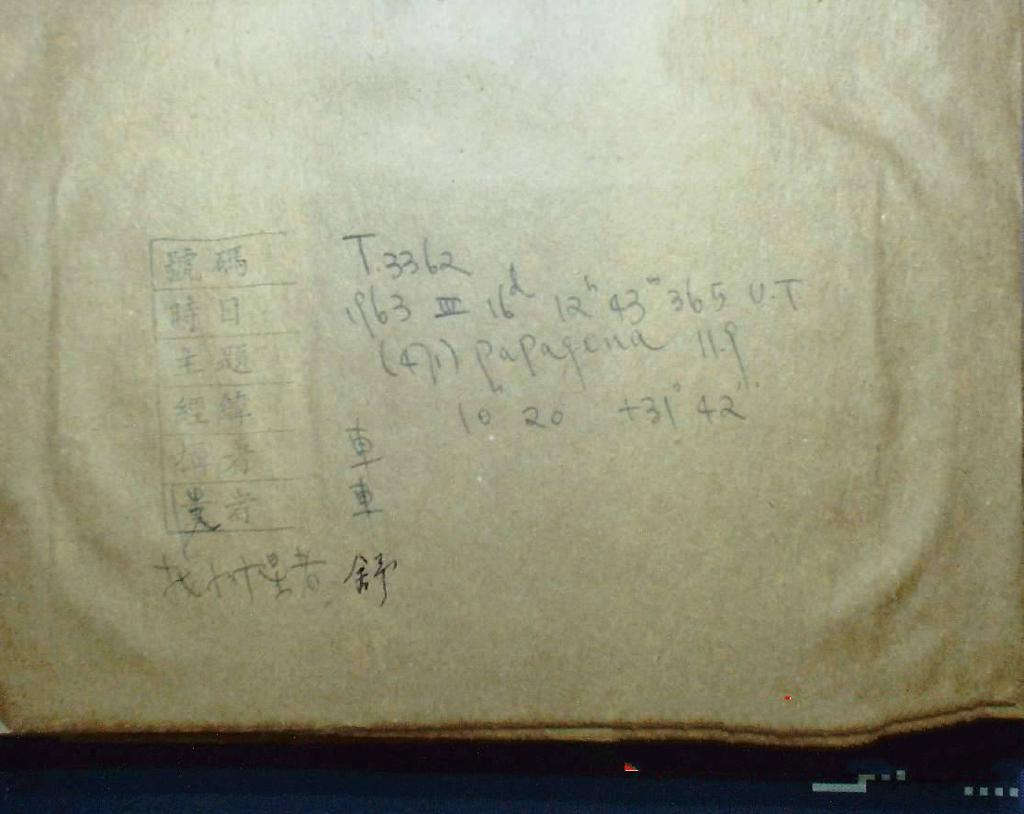 號碼 T.3362
時日 1963 III 16d 12h 43m 365 U.T
主題 (471) papagena 11.9
經緯 10h 20 +31° 42'
者 車
者 車
找小行星者 舒